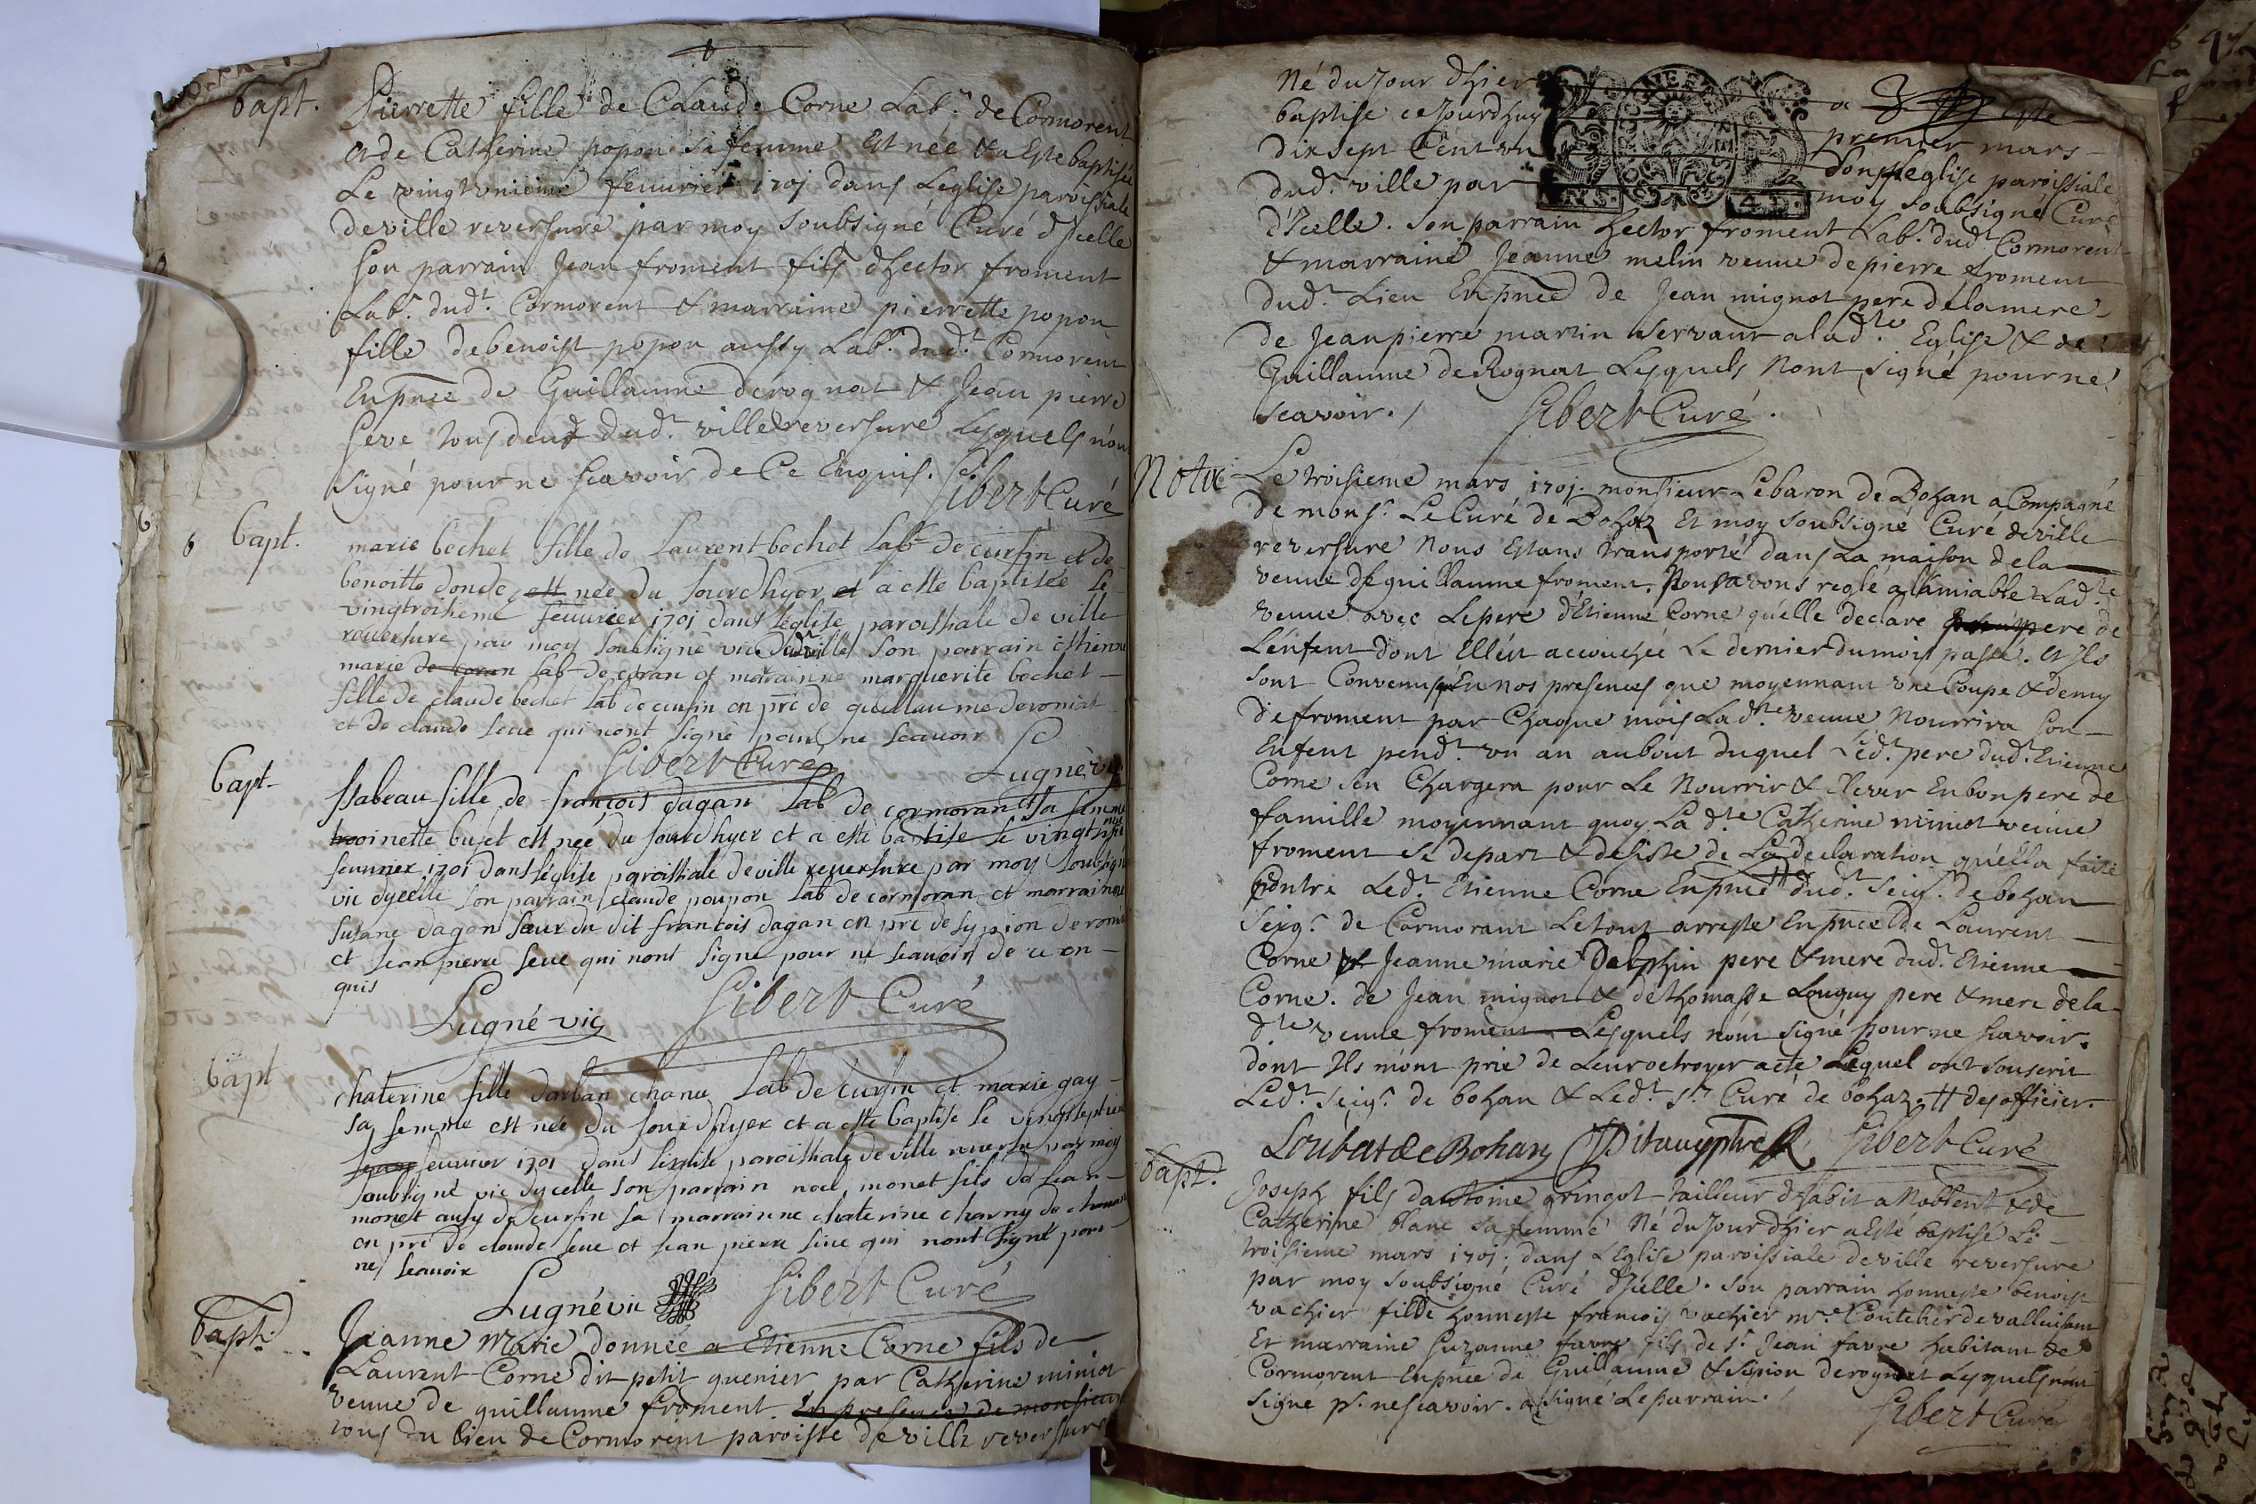 bapt.
Pierrette fille de Claude Corne Lab.r de Cormorent
et de Catherine popon sa femme Est née & a Este baptisée
Le vingtunieme feuvrier 1701 dans Leglise paroissiale
de ville reversure par moy Soubsigné Curé d'Icelle
Son parrain Jean froment fils d'hector froment
Lab.r dud.t Cormorent & marraine pierrette popon
fille de benoist popon aussy Lab.r dud.t Cormorent
En pnce de Guillaume derognat & Jean pierre
Seve tous deux dud.t ville reversure Lesquels n'ont
signé pour ne scavoir de Ce Enquis. Gibert Curé
6
bapt.
marie bochet fille de Laurent bochet Lab.r de curfin et de
benoitte donde est née du Jourdhyer et a este baptisée le
vingtroisieme feuvrier 1701 dans l'eglise paroissiale de ville
reuersure par moy Soubsigné vic dud.t ville Son parrain Estienne
marie de coran lab de coran et marainne marguerite bochet
fille de claude bochet lab de curfin en prē de guillaume deroniat
et de claude seue qui nont signé pour ne scauoir
Gibert Curé Lugné vic
bapt
Isabeau fille de francois dagan Lab de cormorant et sa femme
toinette bujet est née du jourdhyer et a esté baptise le vingt
feuvrier 1701 dans l'eglise paroissiale de ville reuersure par moy Soubsigné
vic dycelle son parrain claude poupon lab de cormoran et marrainne
susane dagan sœur du dit francois dagan en prē de sypion deroniat
et jean pierre seue qui nont signé pour ne scauoir de ce en-
quis
Lugné vic Gibert Curé
bapt
chaterine fille durban chanu Lab de curfin et marie gay
sa femme est née du jourdhyer et a esté baptise le vingtseptieme
feuvrier 1701 dans l'eglise paroissiale de ville reuersu par moy
soubsigné vic dycelle son parrain noel monet fils de jean
monet ausy de curfin sa marrainne chaterine charny de
en prē de claude seue et jean pierre seue qui nont signé pour
ne scauoir
Lugné vic Gibert Curé
bapt.
Jeanne Marie donnée a Etienne Corne fils de
Laurent Corne dit petit guenier par Catherine miniot
veuve de guillaume froment. En presence de monsieur
tous du lieu de Cormorent paroisse de ville reversure
Né du Jour d'hier a este
baptise cejourdhuy premier mars
dix sept Cent un dans Leglise paroissiale
dud.t ville par moy soubsigné Curé
d'Icelle. Son parrain hector froment Lab.r dud.t Cormorent
& marraine Jeanne melin veuve de pierre froment
dud.t Lieu En pnce de Jean mignot pere de la mere
de Jeanpierre martin servant a lad.te Eglise & de
Guillaume de Rognat Lesquels N'ont signé pour ne
scavoir. / Gibert Curé.
Nota
Le troisieme mars 1701. monsieur Le baron de Bohan acompagné
de mons.r Le Curé de Bohaz Et moy soubsigné Curé de ville
reversure Nous Estans transporté dans La maison de la
veuve de guillaume froment. Nous avons reglé a Lamiable Lad.te
veuve avec Le pere d'Etienne Corne qu'elle declare pere de
Lenfent dont Ell'est accouchée Le dernier du mois passé. et Ils
sont Convenus En nos presences que moyennant une Coupe & demy
de froment par Chaque mois La d.te veuve Nourrira son
Enfent pend.t un an au bout duquel Led.t pere dud.t Etienne
Corne s'en Chargera pour Le Nourrir & Elever En bon pere de
famille moyennant quoy La d.te Catherine miniot veuve
froment se depart & desiste de La declaration qu'ell'a faite
Contre Led.t Etienne Corne En pnce dud.t Seig.r de bohan
Seig.r de Cormorant Le tout arresté En pnce de Laurent
Corne & Jeanne marie Dalphin pere & mere dud.t Etienne
Corne. de Jean mignot & de thomasse Louguy pere & mere de la
d.te veuve froment Lesquels n'ont signé pour ne scavoir.
dont Ils m'ont prié de Leur octroyer acte Lequel ont souscrit
Led.t Seig.r de bohan & Led.t s.r Curé de bohaz. # des officier.
Loubat de Bohan Gibert Curé
bapt.
Joseph fils dantoine gringot tailleur d'habit a Noblent & de
Catherine blanc sa femme Né du Jour d'hier a Esté baptisé Le
troisieme mars 1701. dans L'Eglise paroissiale de ville reversure
par moy Soubsigné Curé d'Icelle. Son parrain honneste benoist
vachier fils de honneste francois vachier m.re Coutelier de valleusant
Et marraine Suzanne favre fils de s.r Jean favre habitant de
Cormorent En pnce de Guillaume & sipion derognat Lesquels n'ont
signé p.r ne scavoir. a signé Le parrain. /
Gibert Curé